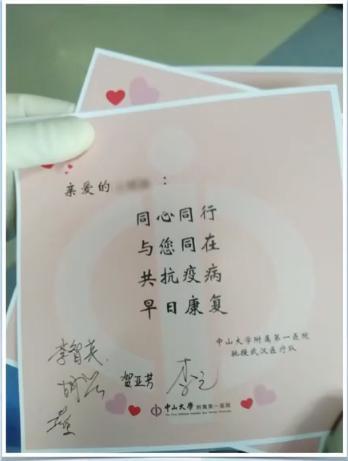 亲爱的 :
同心同行
与您同在
共抗疫病
早日康复
中山大学附属第一医院
驰援武汉医疗队
李智英
贺亚芳
中山大学 附属第一医院